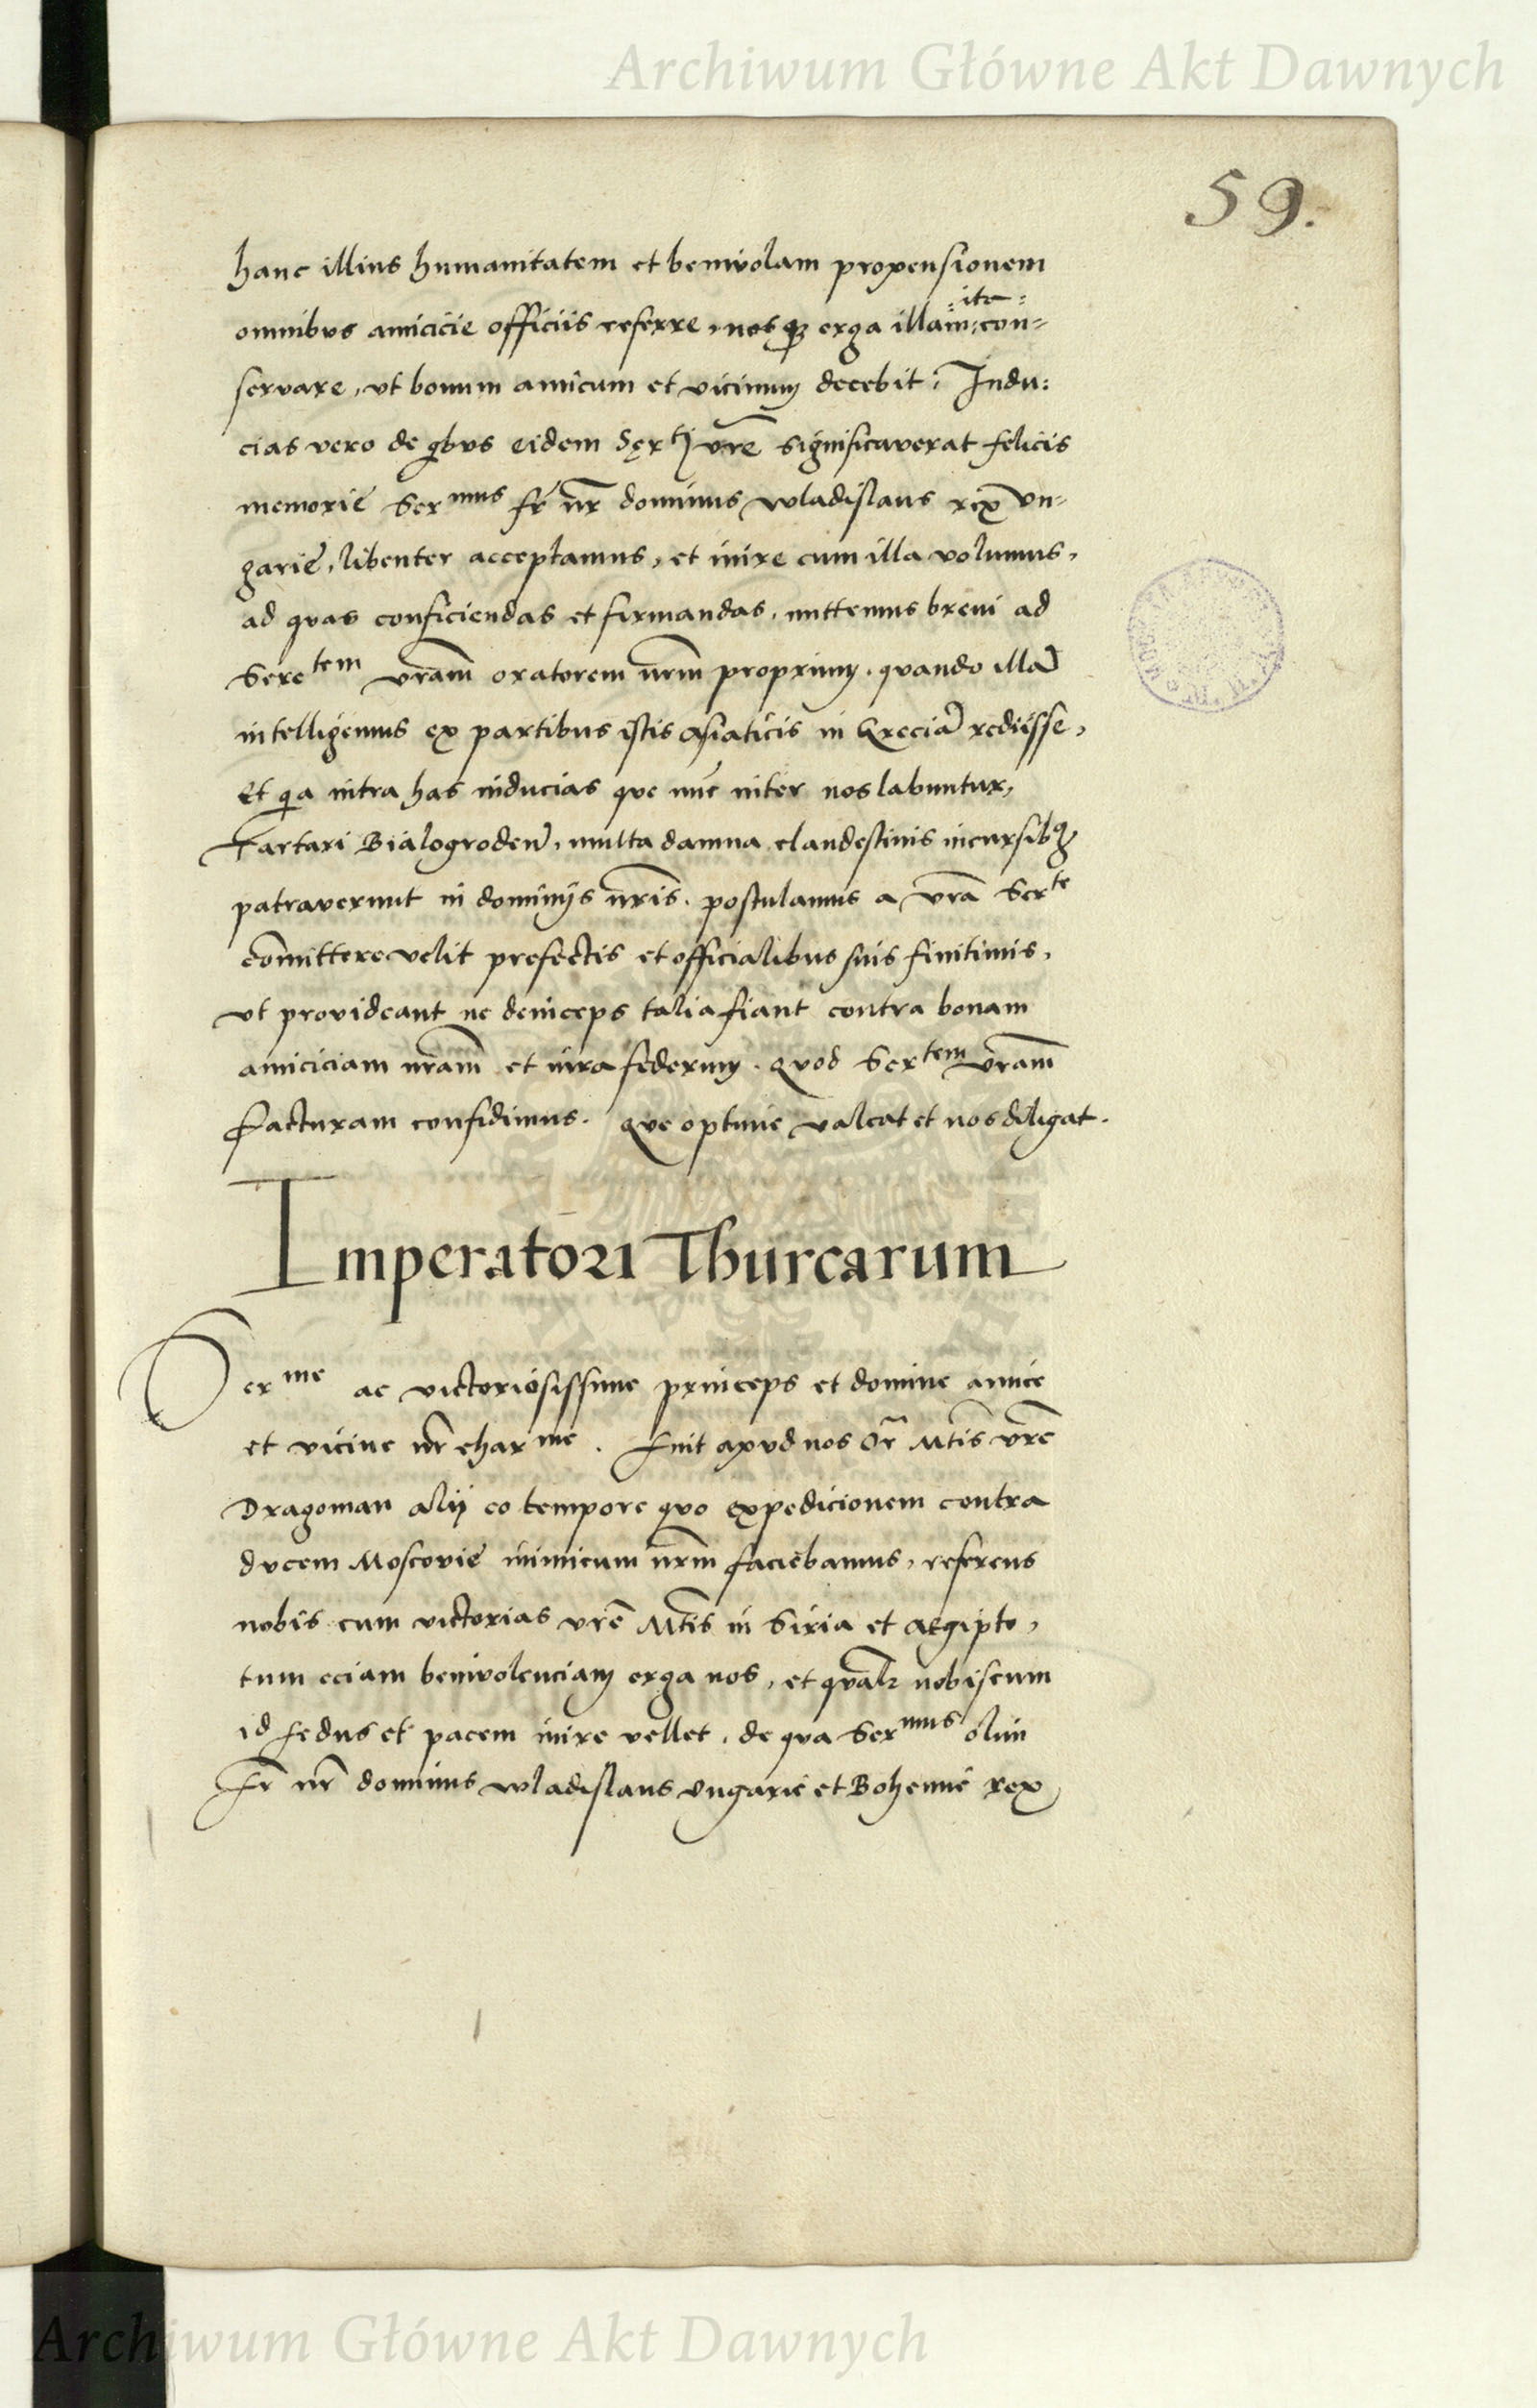 Archiwum Główne Akt Dawnych
59.
hanc illius humanitatem et benivolam propensionem
:ita:
omnibus amicicie officiis referre, nosq3 erga illam:con-
servare, ut bonum amicum et vicinum decebit. Indu:
cias vero de qbus eidem Serti vre significaverat felicis
memorie Sermus fr nr dominus wladislaus rex Vn-
garie, libenter acceptamus, et inire cum illa volumus,
ad quas conficiendas et firmandas, mittemus brevi ad
Seretem vram oratorem nrm proprium. quando illa
intelligemus ex partibus istis asiaticis in Grecia rediisse,
Et qa intra has inducias que nuc inter nos labuntur,
Tartari Bialogroden, multa damna clandestinis incursibq
patraverunt in dominijs nris. postulamus a vra Serte
comittere velit prefectis et officialibus suis finitimis,
ut provideant ne deinceps talia fiant contra bonam
amiciciam nram et iura federum. quod Sertem vram
facturam confidimus. que optime valeat et nos diligat.
Imperatori Thurcarum
Serme ac victoriosissime princeps et domine amice
et vicine nr charme. Fuit apud nos Or Mtis vre
Dragoman alij eo tempore quo expedicionem contra
ducem Moscovie inimicum nrm faciebamus, referens
nobis cum victorias vre Mtis in Siria et Aegipto,
tum eciam benivolenciam erga nos, et qualr nobiscum
id fedus et pacem inire vellet, de qua Sermus olim
Fr nr dominus wladislaus Vngarie et Bohemie rex
Archiwum Główne Akt Dawnych